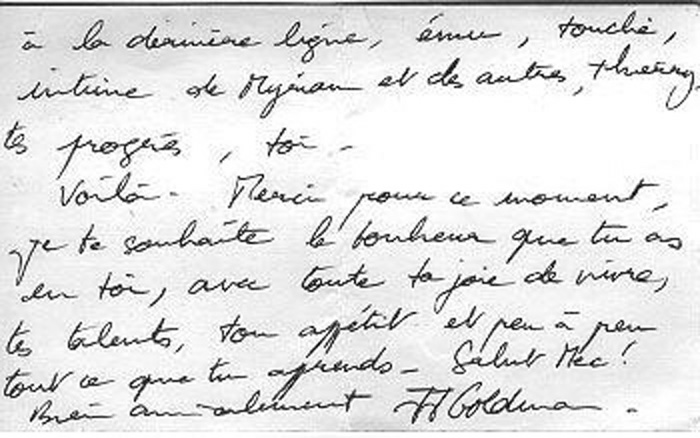 à la dernière ligne, ému, touché,
intime de Myriam et des autres, thierry
tes progrès, toi -
Voilà - Merci pour ce moment,
je te souhaite le bonheur que tu as
en toi, avec toute ta joie de vivre,
tes talents, ton appétit et peu à peu
tout ce que tu apprends - Salut Mec!
Bien amicalement JJ Goldman -